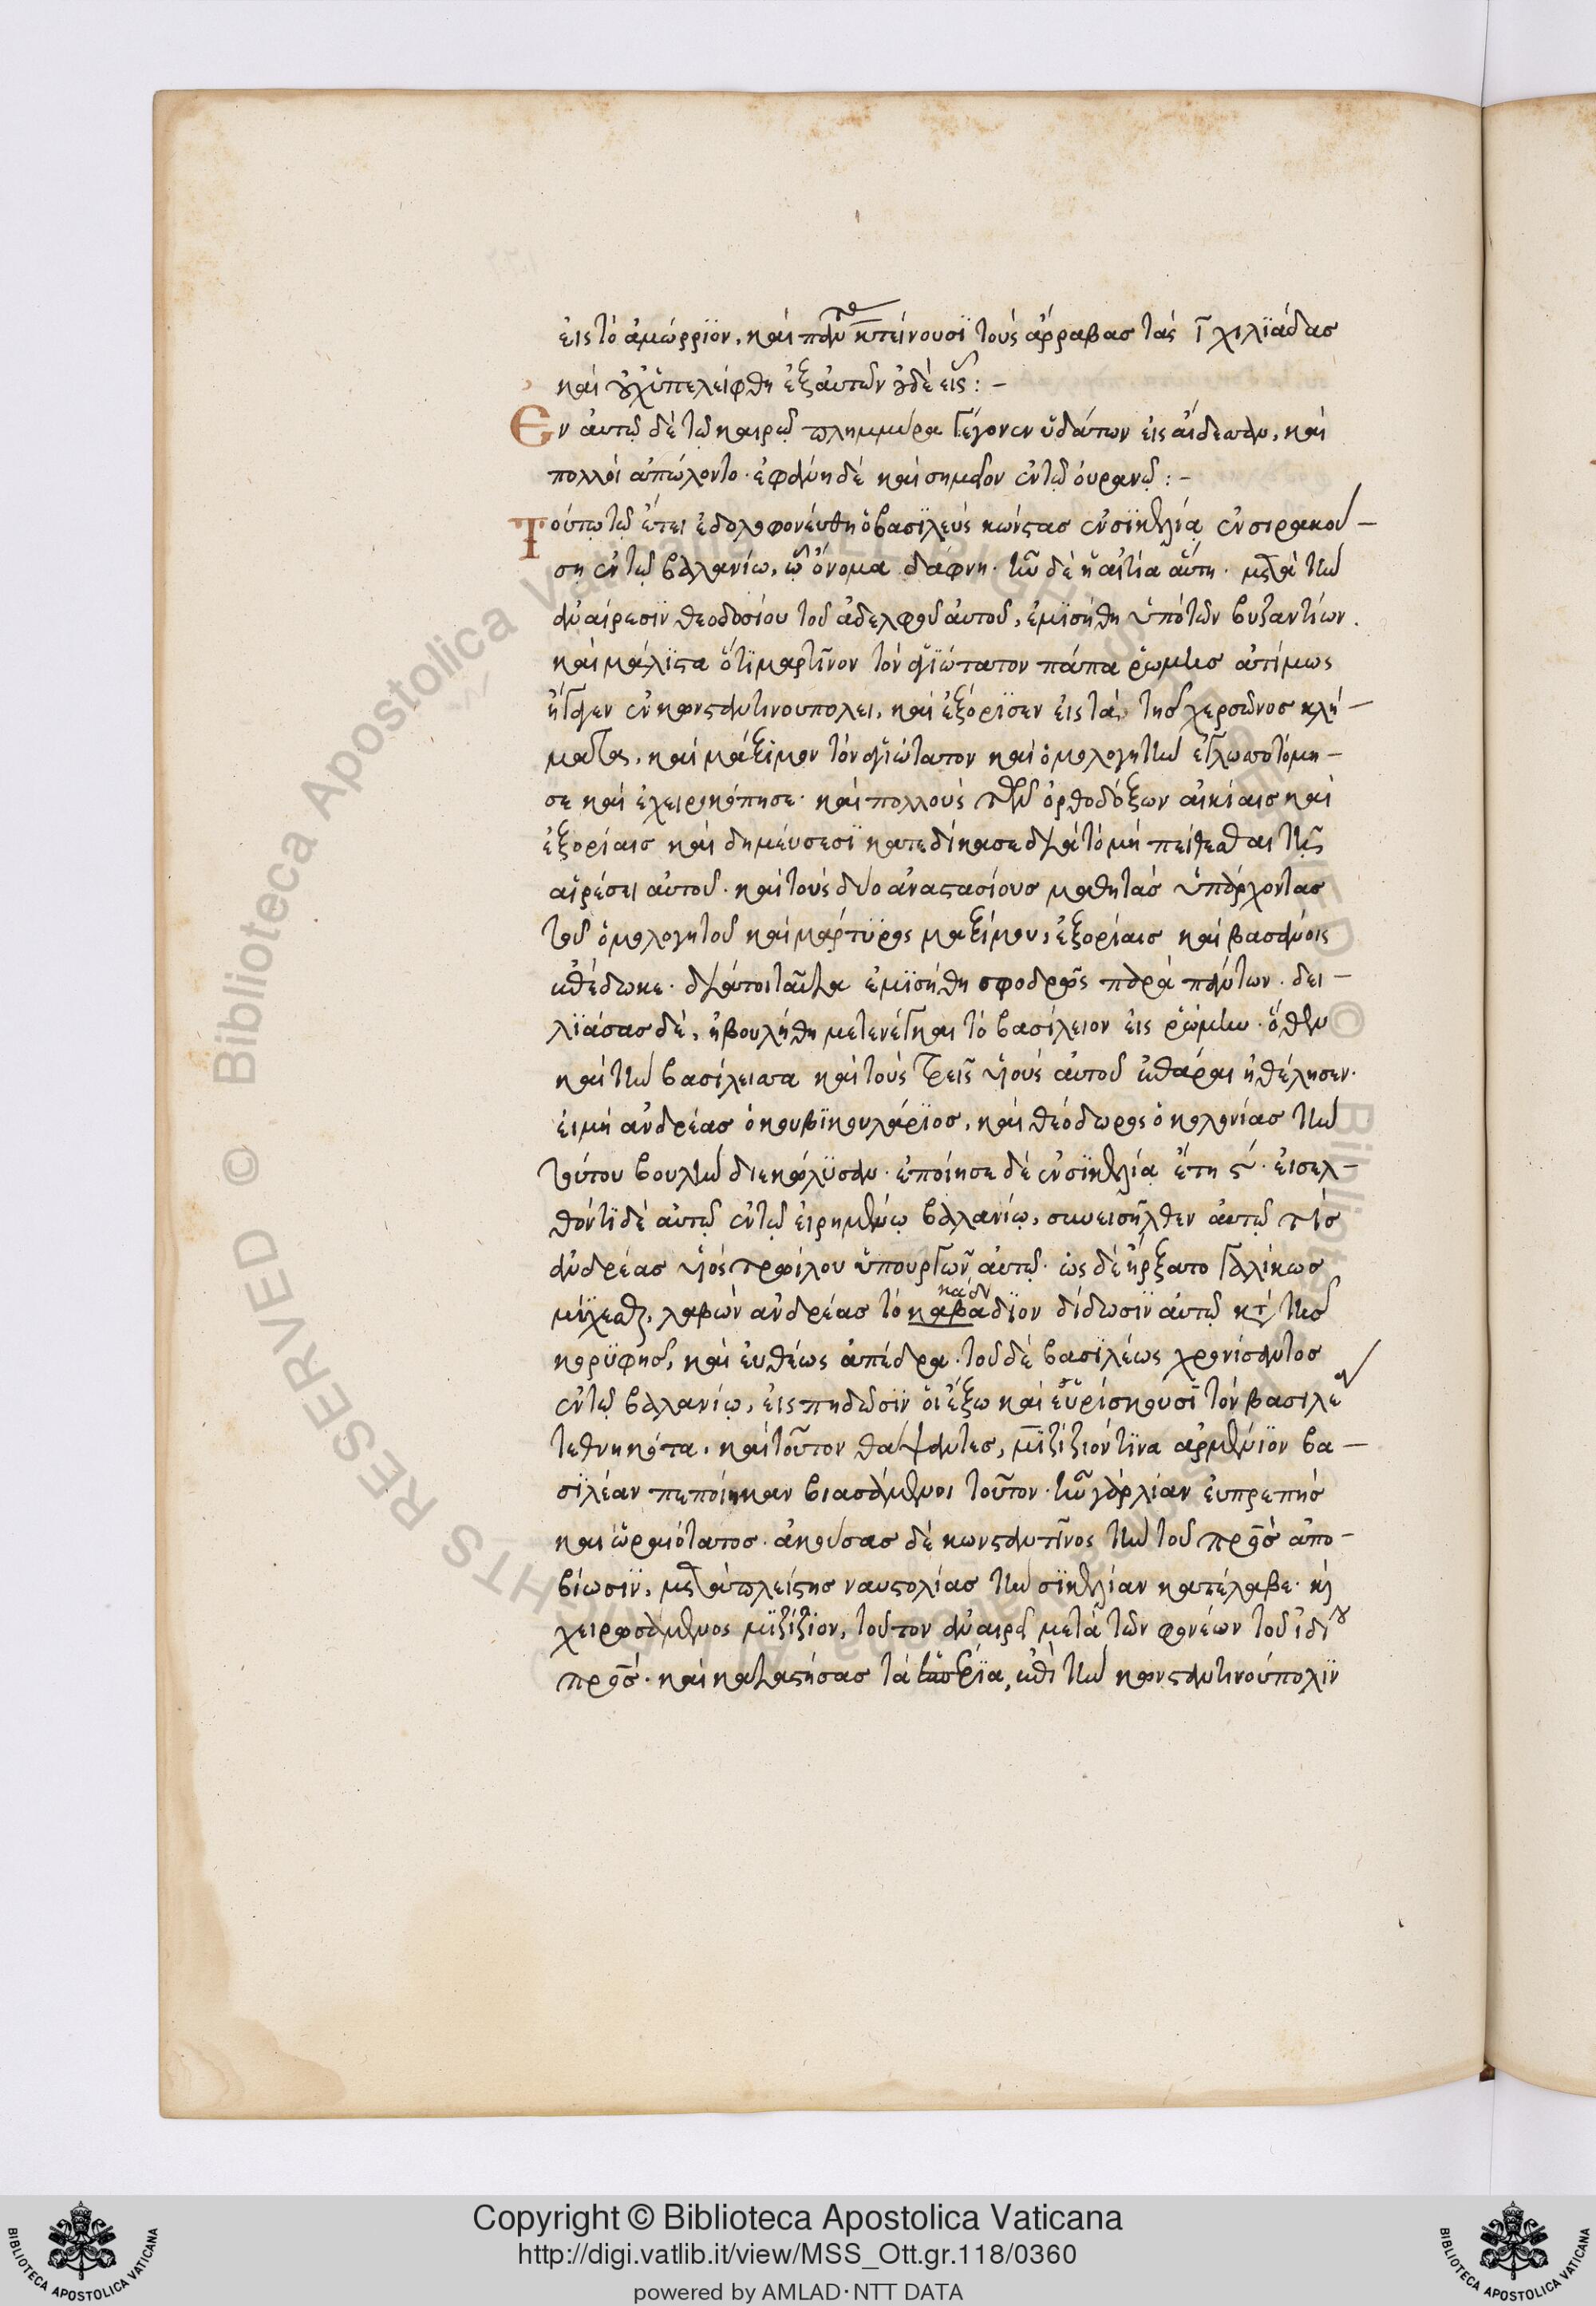 εἰς τὸ ἀμώρριον, καὶ πάντας κτείνουσι τοὺς ἄρραβας τὰς ε̄ χιλιάδας
καὶ οὐχ ὑπελείφθη ἐξ αὐτῶν οὐδὲ εἷς : –
Ἐν αὐτῷ δὲ τῷ καιρῷ πλημμύρα γέγονεν ὑδάτων εἰς αἴδεσαν, καὶ
πολλοὶ ἀπώλοντο · ἐφάνη δὲ καὶ σημεῖον ἐν τῷ οὐρανῷ : –
Τούτῳ τῷ ἔτει ἐδολοφονεύθη ὁ βασιλεὺς κώνστας ἐν σικελίᾳ ἐν σιρακού –
ση ἐν τῷ βαλανίω, ᾧ ὄνομα δάφνη · ἦν δὲ ἡ αἰτία αὕτη · μετὰ τὴν
ἀναίρεσιν θεοδοσίου τοῦ ἀδελφοῦ αὐτοῦ, ἐμισήθη ὑπὸ τῶν βυζαντίων.
καὶ μάλιστα ὅτι μαρτῖνον τὸν ἁγιώτατον πάπα ῥώμης ἀτίμως
ἤγαγεν ἐν κωνσταντινουπόλει, καὶ ἐξόρισεν εἰς τὰ τῆς χερσῶνος κλή –
ματα, καὶ μάξιμον τὸν ἁγιώτατον καὶ ὁμολογητὴν ἐγλωσσοτόμη –
σε καὶ ἐχειροκόπησε · καὶ πολλοὺς τῶν ὀρθοδόξων αἰκίαις καὶ
ἐξορίαις καὶ δημεύσεσι κατεδίκασε διὰ τὸ μὴ πείθεσθαι τῇ
αἱρέσει αὐτοῦ · καὶ τοὺς δύο ἀναστασίους μαθητὰς ὑπάρχοντας
τοῦ ὁμολογητοῦ καὶ μάρτυρος μαξίμου, ἐξορίαις καὶ βασάνοις
παρέδωκε · διά τοι ταῦτα ἐμισήθη σφοδρῶς παρὰ πάντων · δει –
λιάσας δὲ, ἠβουλήθη μετενέγκαι τὸ βασίλειον εἰς ῥώμην · ὅθεν
καὶ τὴν βασίλεισσα καὶ τοὺς τρεῖς υἱοὺς αὐτοῦ παρᾶραι ἠθέλησεν ·
εἰ μὴ ἀνδρέας ὁ κουβικουλάριος, καὶ θεόδωρος ὁ κολονίας τὴν
τούτου βουλὴν διεκώλυσαν · ἐποίησε δὲ ἐν σικελίᾳ ἔτη ϛ · εἰσελ –
θόντι δὲ αὐτῷ ἐν τῷ εἰρημένῳ βαλανίῳ, συνεισῆλθεν αὐτῷ τὶς
ἀνδρέας υἱὸς τρωίλου ὑπουργῶν αὐτῷ · ὡς δὲ ἤρξατο γαλίκως
μίχεσθαι, λαβὼν ἀνδρέας τὸ καβάδιον δίδωσιν αὐτῷ κατὰ τῆς
κορυφῆς, καὶ εὐθέως ἀπέδρα · τοῦ δὲ βασιλέως χρονίσαντος
ἐν τῷ βαλανίῳ, εἰσπηδῶσιν οἱ ἔξω καὶ εὑρίσκουσι τὸν βασιλέαν
τεθνηκότα · καὶ τοῦτον θάψαντες, μιζίζιόν τινα ἀρμένιον βα –
σιλέαν πεποίηκαν βιασάμενοι τοῦτον · ἦν γὰρ λίαν εὐπρεπὴς
καὶ ὡραιότατος · ἀκούσας δὲ κωνσταντῖνος τὴν τοῦ πρς ἀπο –
βίωσιν, μετὰ πλείστης ναυστολίας τὴν σικελίαν κατέλαβε · καὶ
χειρωσάμενος μιζίζιον, τοῦτον ἀναιρεῖ μετὰ τῶν φονέων τοῦ ἰδίου
πρς · καὶ καταστήσας τὰ ἑσπέρια, ἐπὶ τὴν κωνσταντινούπολιν
Copyright © Biblioteca Apostolica Vaticana
http://digi.vatlib.it/view/MSS_Ott.gr.118/0360
powered by AMLAD·NTT DATA